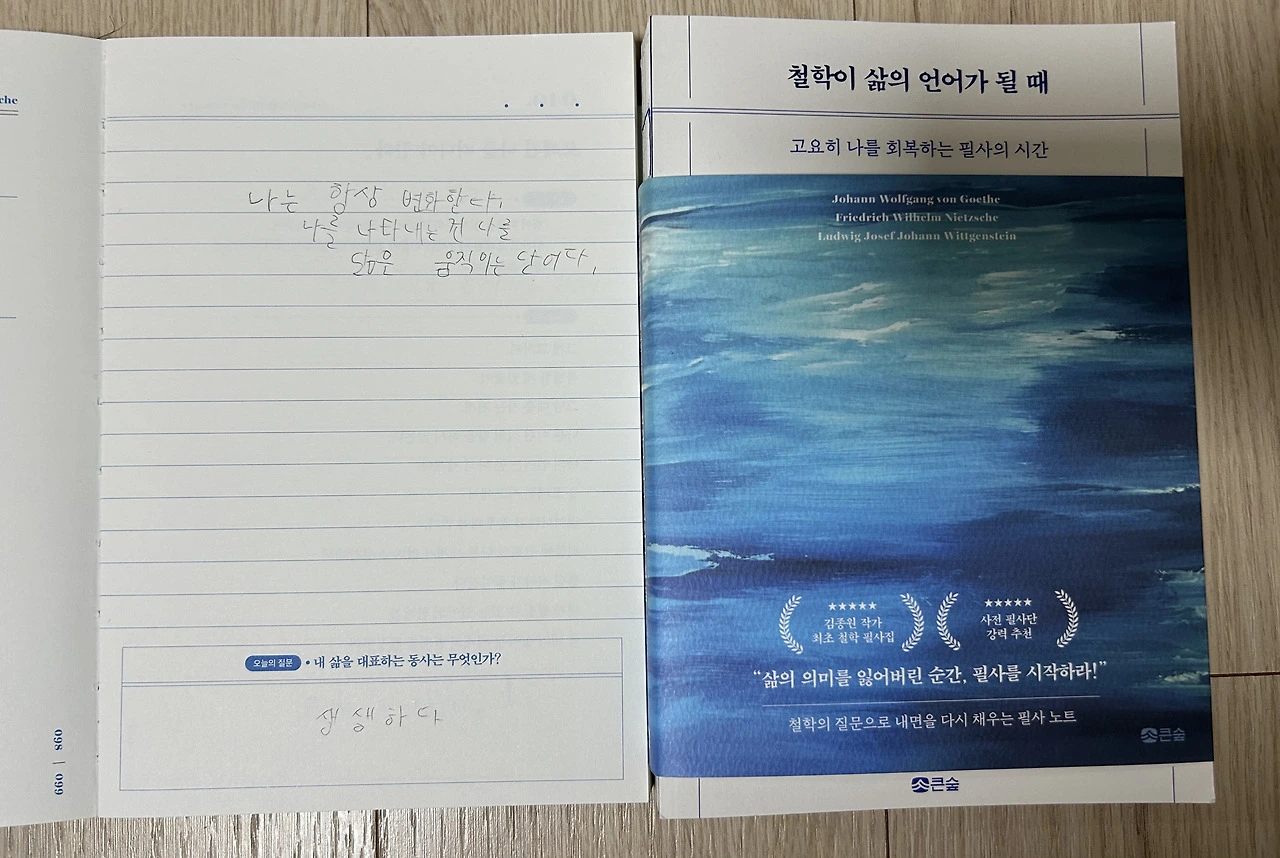 che
나는 항상 변화한다.
나를 나타내는 건 나를
닮은 움직이는 단어다.
오늘의 질문 • 내 삶을 대표하는 동사는 무엇인가?
생생하다
098 | 099
철학이 삶의 언어가 될 때
고요히 나를 회복하는 필사의 시간
Johann Wolfgang von Goethe
Friedrich Wilhelm Nietzsche
Ludwig Josef Johann Wittgenstein
★★★★★ ★★★★★
김종원 작가 사전 필사단
최초 철학 필사집 강력 추천
“삶의 의미를 잃어버린 순간, 필사를 시작하라!”
철학의 질문으로 내면을 다시 채우는 필사 노트
큰숲
큰숲